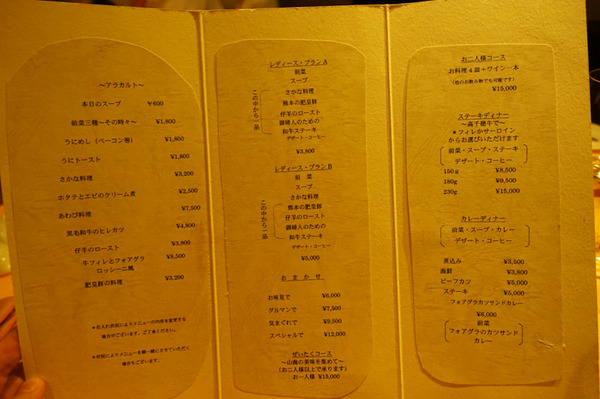 ～アラカルト～
本日のスープ ¥600
前菜三種～その時々～ ¥1,800
うにめし（ベーコン巻） ¥1,800
うにトースト ¥1,800
さかな料理 ¥3,200
ホタテとエビのクリーム煮 ¥2,500
あわび料理 ¥7,500
黒毛和牛のヒレカツ ¥4,800
仔羊のロースト ¥3,800
牛フィレとフォアグラ ¥8,500
ロッシーニ風
肥皇鮮の料理 ¥3,200
＊仕入れ状況によりメニューの内容を変更する
場合がございます。ご了承ください。
＊状況によりメニューを統一にさせていただく
場合もございます。
レディース・プランA
前菜
スープ
この中から一品
さかな料理
熊本の肥皇鮮
仔羊のロースト
御婦人のための
和牛ステーキ
デザート・コーヒー
¥3,800
レディース・プランB
前菜
スープ
この中から一品
熊本の肥皇鮮
仔羊のロースト
御婦人のための
和牛ステーキ
デザート・コーヒー
¥5,000
おまかせ
お味見で ¥6,000
グルマンで ¥7,500
気まぐれで ¥9,500
スペシャルで ¥12,000
ぜいたくコース
～山海の美味を集めて～
（お二人様以上で承ります）
お一人様 ¥15,000
お二人様コース
お料理4皿＋ワイン一本
（他のお飲み物でも可能です）
¥15,000
ステーキディナー
～高千穂牛で～
＊フィレかサーロイン
からお選びいただけます
前菜・スープ・ステーキ
デザート・コーヒー
150g ¥8,500
180g ¥9,500
230g ¥15,000
カレーディナー
前菜・スープ・カレー
デザート・コーヒー
煮込み ¥3,500
海鮮 ¥3,800
ビーフカツ ¥5,000
ステーキ ¥5,000
フォアグラカツサンドカレー
¥6,000
前菜
フォアグラのカツサンド
カレー